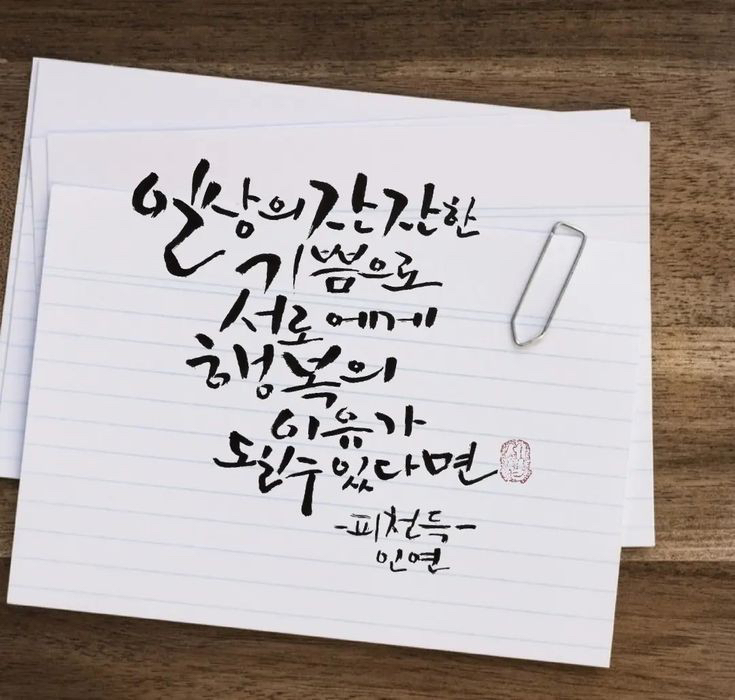 일상의 잔잔한
기쁨으로
서로에게
행복의
이유가
될 수 있다면
-피천득-
인연